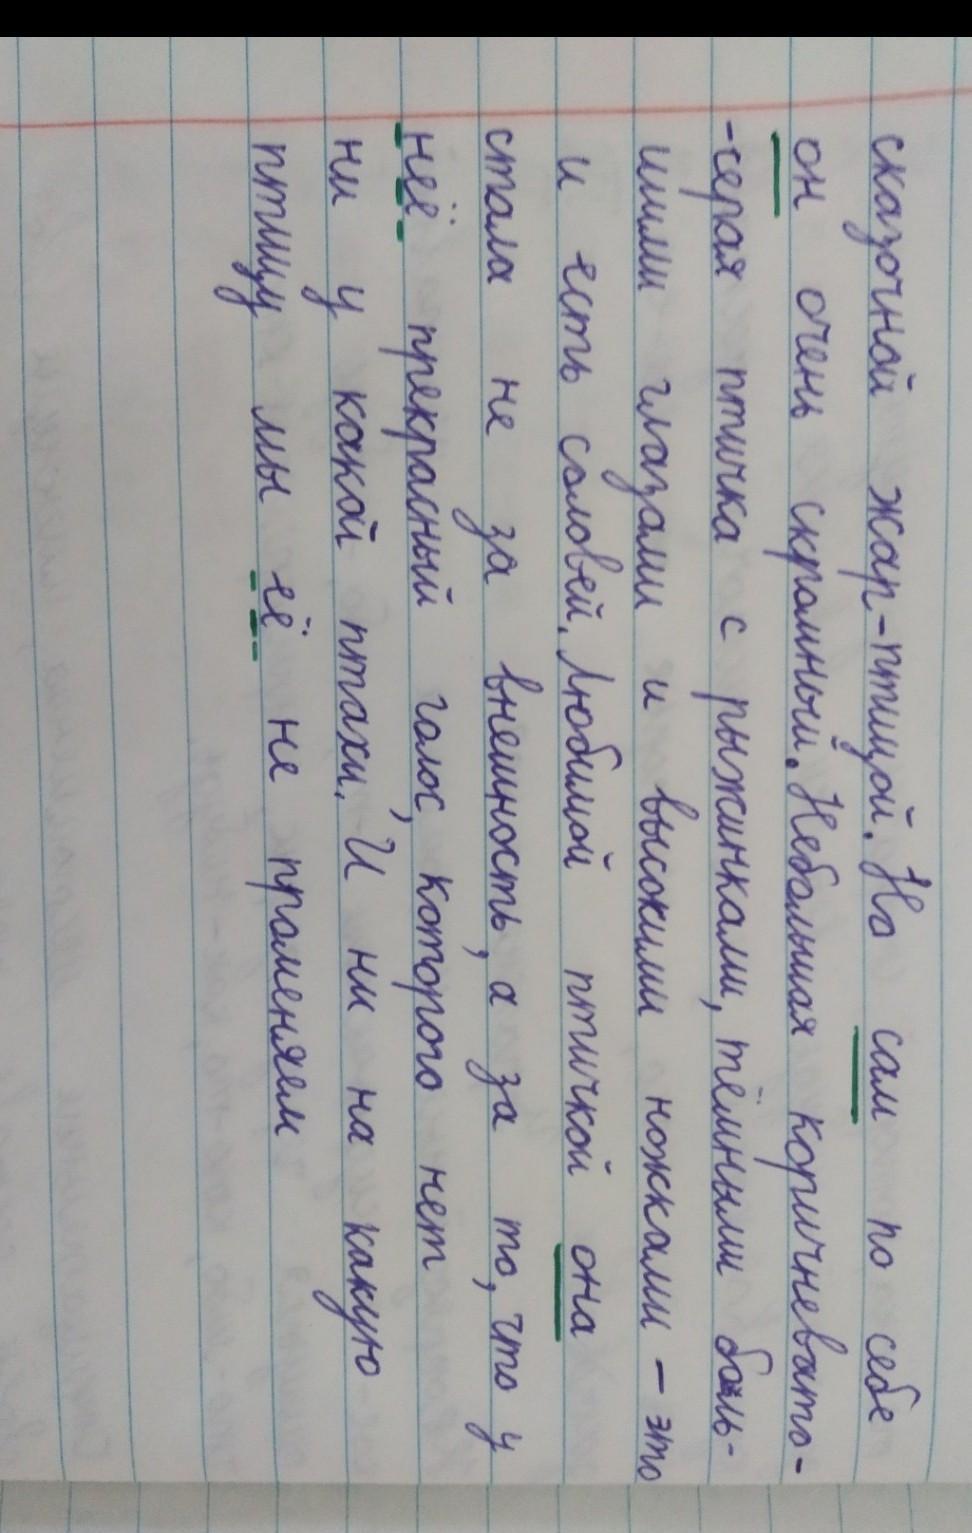 сказочной жар-птицой. Но сам по себе
он очень скромный. Небольшая коричневато-
-серая птичка с рыжинками, тёмными боль-
шими глазами и высокими ножками – это
и есть соловей. Любимой птичкой она
стала не за внешность, а за то, что у
неё прекрасный голос, которого нет
ни у какой птахи. И ни на какую
птицу мы её не променяем